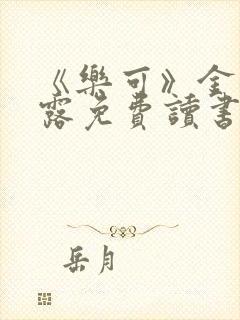 《樂可》全
露免費讀書
岳月